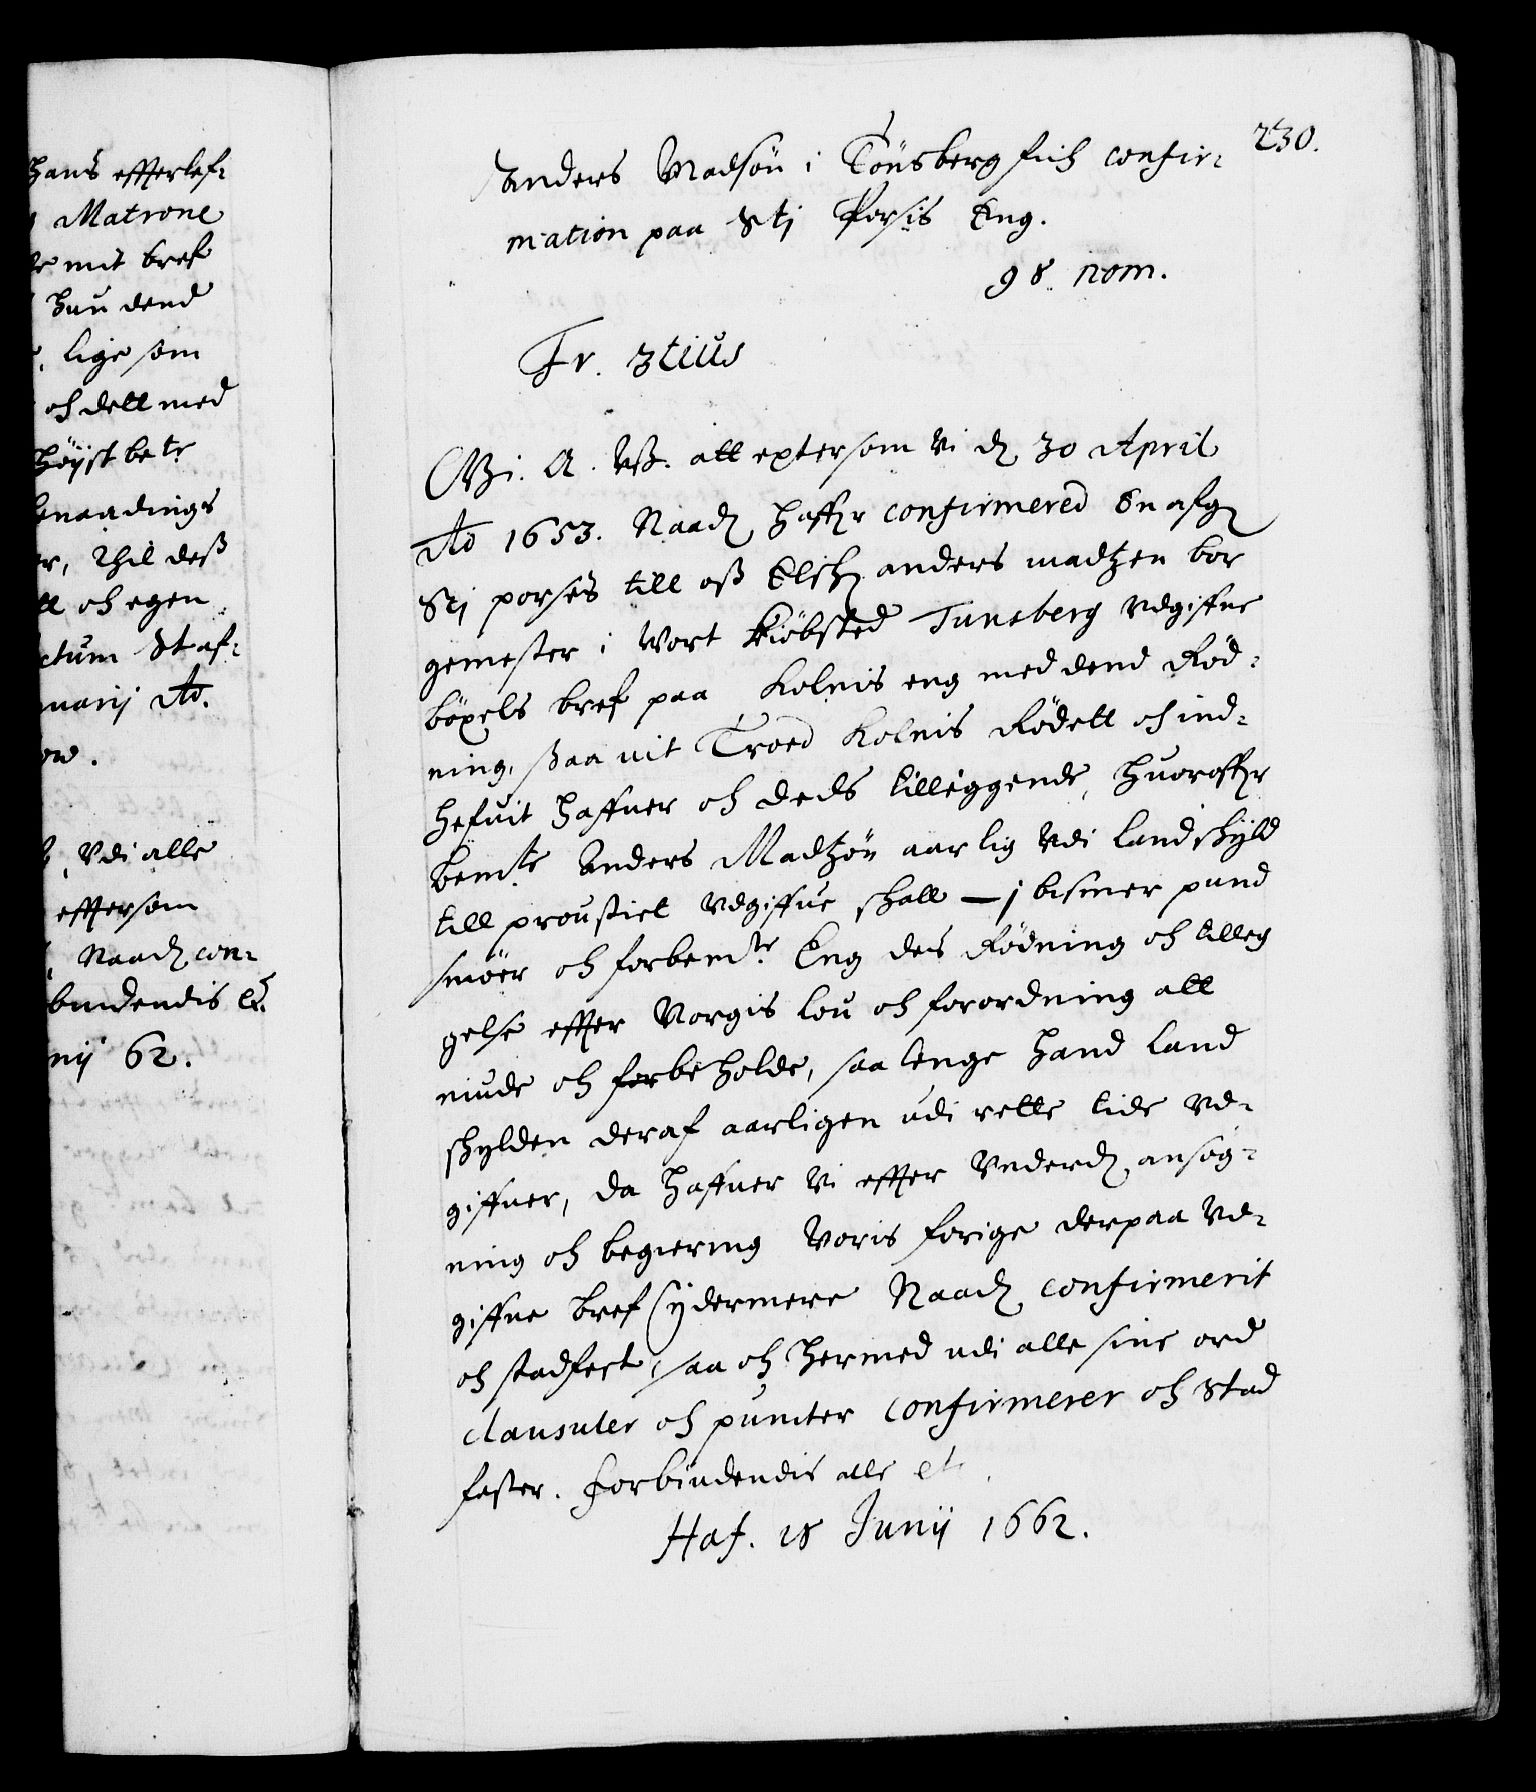 hans effterlef-
Matrone
mit bref
hun dend
lige som
och dett med
höijstbete
benaadings
er, Thil dess
tt och egen
ctum Staf-
nuarij Ao.
Vdi alle
effersom
Naadh con-
bindendis etc.
nij 62.
230.
Anders Madsön i Tönsberg fich confir-
mation paa Stj Porsis Eng.
98 nom.
Fr. 3tius
Wi. A. Vß. att eptersom Vi dh 30 April
Ao 1653. Naadh haffr confirmered En afgh
Stj porses till oß Elskh anders madtzen bor
gemester i Vort kiöbsted Tunsberg vdgiffne
böxels bref paa Kolnis eng med dend Röd-
ning, ßaa vit Troed Kolnis Rödett och ind-
hefuit haffuer och deds tilliggende, huoroffr
bemte Anders Madtzön aarlig Vdi Landskyld
till proustiet vdgiffue skall — j bismer pund
smöer och forbemte Eng des Rödning och tilleg
gelse effter Norgis lou och forordning att
niude och forbeholde, saa lenge hand Land
skylden deraf aarligen udi rette tide vd-
giffuer, da haffuer Vi effter Vnderdh ansög-
ning och begiering Voris forige derpaa Vd-
giffne bref ydermere Naadh confirmerit
och stadfest, saa och hermed udi alle sine ord
clausuler och puncter confirmerer och stad
fester. forbiudendis alle etc.
Haf. 18 Junij 1662.